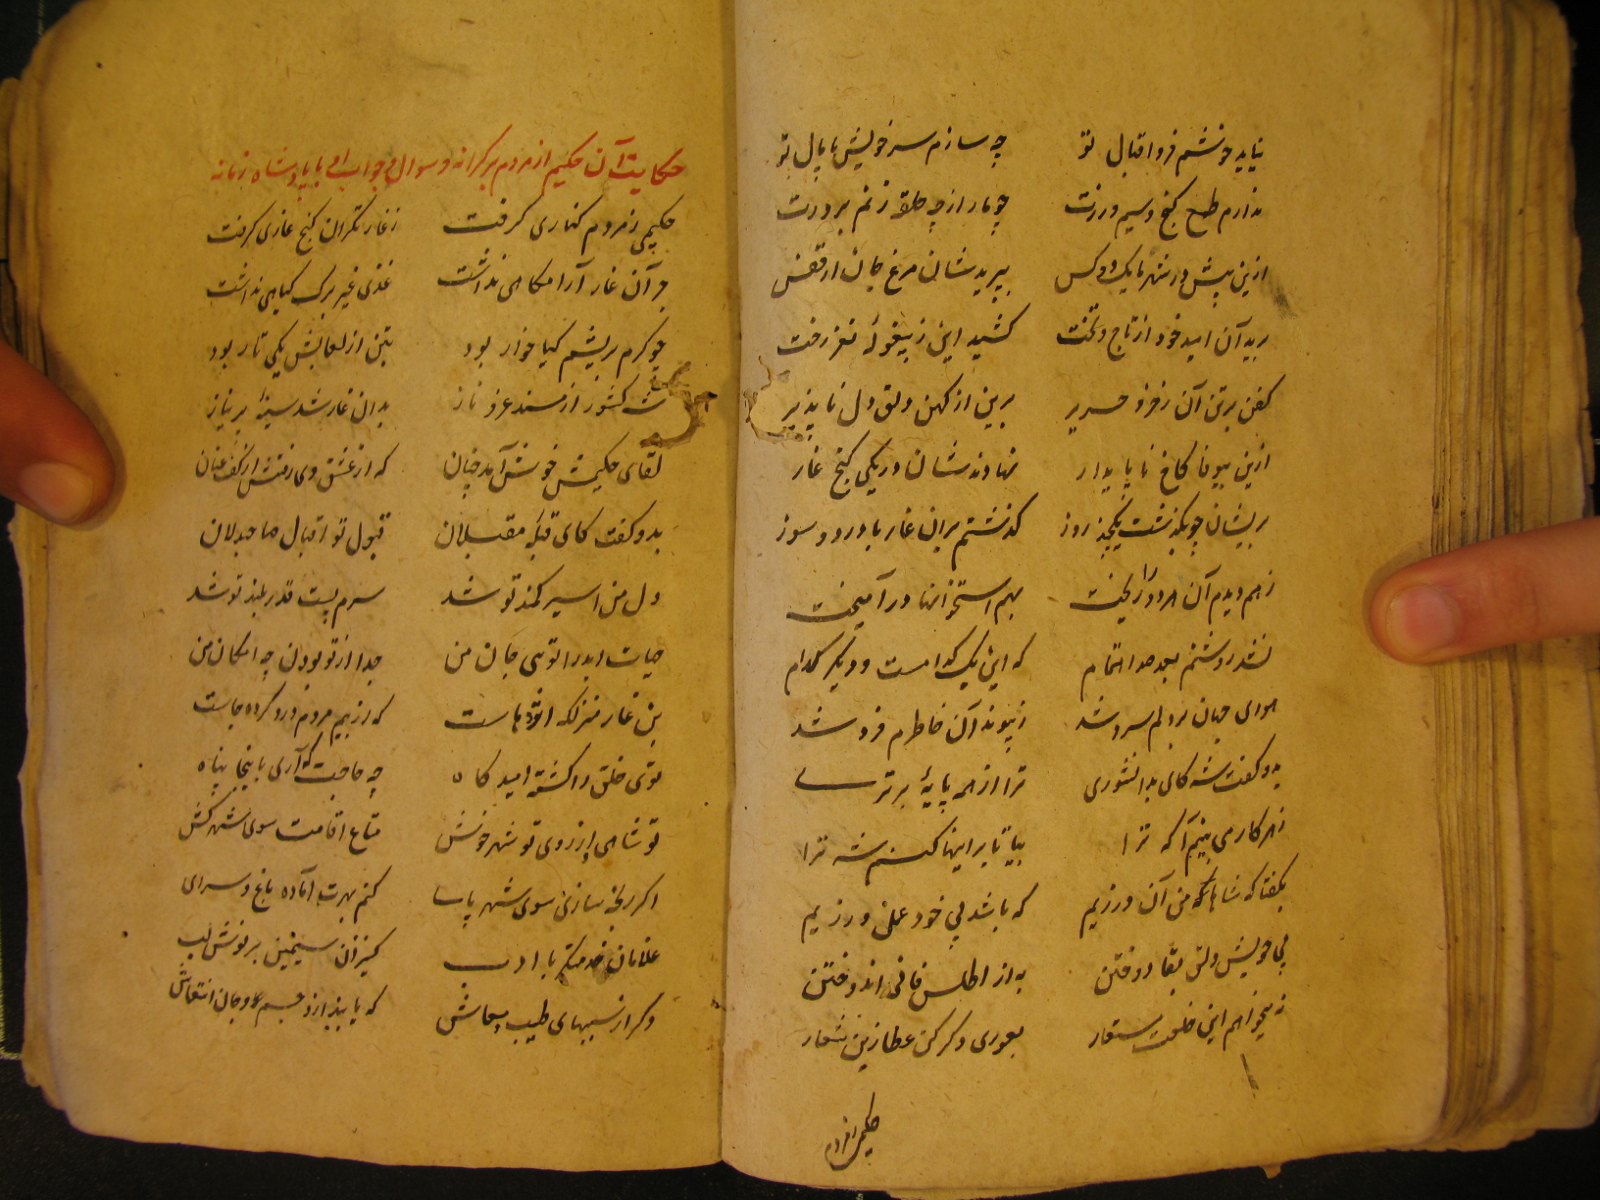 نیاید خوشم فر و اقبال تو چه سازم سر خویش پامال تو
ندارم طمع گنج و سیم و زرت چو مار از چه حلقه زنم بر درت
ازین پیش در شهر ما یک دو کس بپریدشان مرغ جان از قفس
برید آن امید خود از تاج و تخت کشید این ز بیغوله نغز رخت
کفن بر تن آن ز خز و حریر برین از کهن دلق دل ناپذیر
ازین بیوفا کاخ ناپایدار نهادندشان در یکی کنج غار
بریشان چو بگذشت یکچند روز گذشتم بران غار با درد و سوز
زهم دیدم آن هر دو را ریخت بهم استخوانها درآمیخت
نشد روشنم بعد صد اهتمام که این یک کدامست و دیگر کدام
هوای جهان بر دلم سرد شد ز پیوند آن خاطرم فرد شد
بدو گفت شه کای بدانشوری ترا از همه پایه برتری
بهر کار می بینم آگه ترا بیا تا بر اینها کنم شه ترا
بگفتا که شاها نه من آن ورزیم که باشد پی خود عمل ورزیم
پی خویش دلق بقا دوختن به از اطلس فانی اندوختن
نمیخواهم این خلعت مستعار بعوری دگر کن عطا زین شعار
حکیمی ز مردم
حکایت آن حکیم از مردم بر کرانه و سوال و جواب او با پادشاه زمانه
حکیمی ز مردم کناری گرفت ز غار گران کنج غاری گرفت
در آن غار آرامگاهی نداشت غذی غیر برگ گیاهی نداشت
چو کرم بریشم گیا خوار بود بتن از لعابش یکی تار بود
شه کشور از مسند عز و ناز بدان غار شد سینه پر نیاز
لقای حکیمش خوش آمد چنان که از عشق وی رفتش از کف عنان
بدو گفت کای قبله مقبلان قبول تو اقبال صاحبدلان
دل من اسیر کمند تو شد سرم پست قدر بلند تو شد
حیات ابد را توی جان من جدا از تو بودن چه امکان من
بن غار منزلگه اژدهاست که از بیم مردم درو کرده جاست
توی خلق را گشته امیدگاه چه حاجت که آری باینجا پناه
تو شاهی و از روی تو شهر خوش متاع اقامت سوی شهر کش
اگر رنجه سازی سوی شهر پای کنم بهرت آماده باغ و سرای
غلامان خدمتگر با ادب کنیزان سیمین بر نوش لب
دگر از سببهای طیب معاش که یابد ازو جسم و جان انتعاش